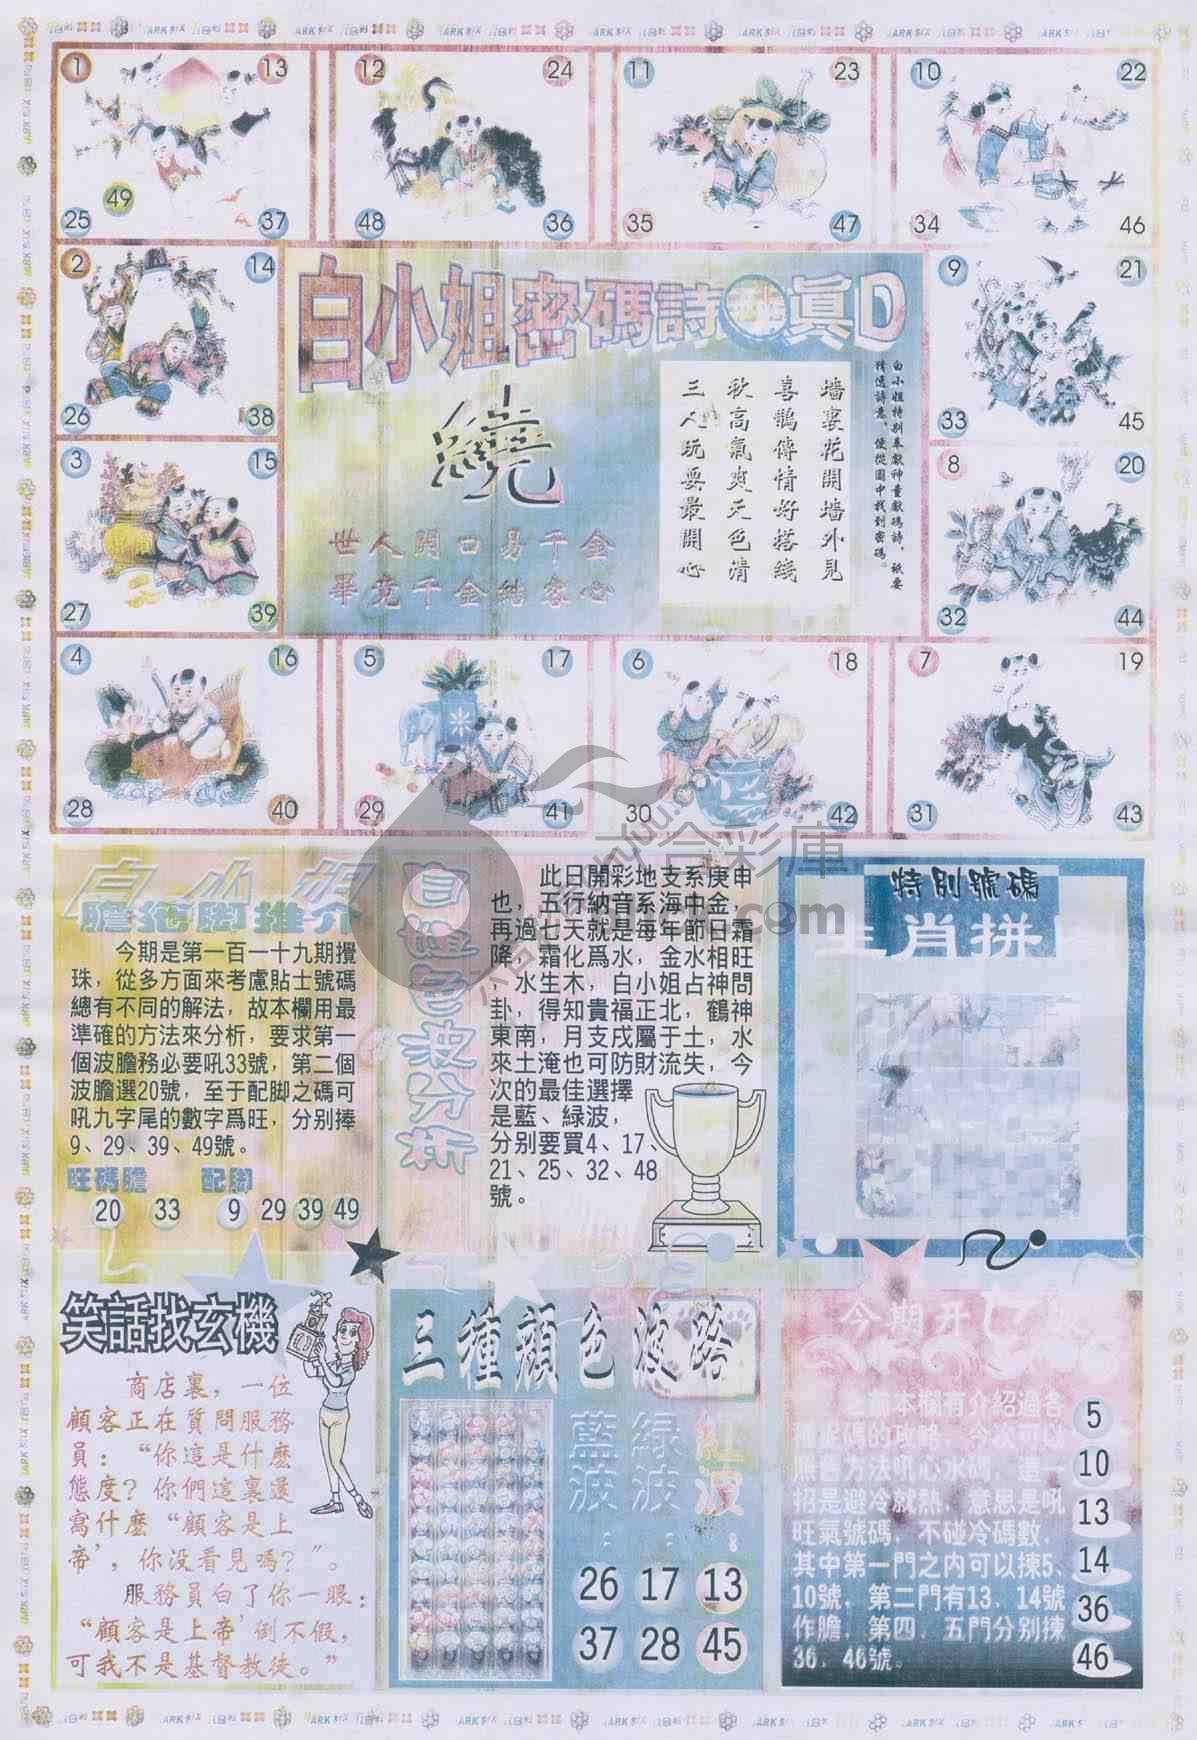 1 13 49 25 37
12 24 48 36
11 23 35 47
10 22 34 46
2 14 26 38
9 21 33 45
3 15 27 39
8 20 32 44
4 16 28 40
5 17 29 41
6 18 30 42
7 19 31 43
白小姐密碼詩
真D
繞
世人開口易千金
畢竟千金結客心
白小姐特别奉獻神童數碼詩，祇要
精透詩意，便從圖中找到密碼。
墙裏花開墙外見
喜鵲傳情好搭綫
秋高氣爽天色清
三人玩耍最開心
白小姐
膽拖脚推介
今期是第一百一十九期攪
珠，從多方面來考慮貼士號碼
總有不同的解法，故本欄用最
準確的方法來分析，要求第一
個波膽務必要吼33號，第二個
波膽選20號，至于配脚之碼可
吼九字尾的數字爲旺，分别捧
9、29、39、49號。
旺碼膽 配脚
20 33 9 29 39 49
白姐色波分析
此日開彩地支系庚申
也，五行納音系海中金，
再過七天就是每年節日霜
降，霜化爲水，金水相旺
，水生木，白小姐占神問
卦，得知貴福正北，鶴神
東南，月支戌屬于土，水
來土淹也可防財流失，今
次的最佳選擇
是藍、綠波，
分别要買4、17、
21、25、32、48
號。
特别號碼
生肖拼
六合彩庫
笑話找玄機
商店裏，一位
顧客正在質問服務
員：“你這是什麼
態度？你們這裏還
寫什麼“顧客是上
帝’，你没看見嗎？”。
服務員白了你一眼：
“顧客是上帝’倒不假，
可我不是基督教徒。”
三種顔色波路
藍波： 綠波： 紅波：
26 17 13
37 28 45
今期开
本欄有介紹過各
招是避冷就熱，意思是吼
旺氣號碼，不碰冷碼數，
其中第一門之内可以揀5、
10號，第二門有13、14號
作膽，第四、五門分别揀
36、46號。
5
10
13
14
36
46